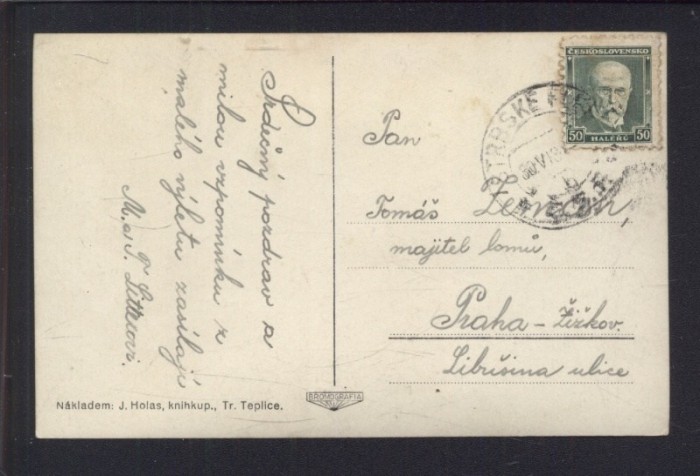 Srdečný pozdrav a
milou vzpomínku z
malého výletu zasílají
M. a T.
Pan
Tomáš Zeman,
majitel lomů,
Praha – Žižkov.
Libušina ulice
ČESKOSLOVENSKO
50 HALÉŘŮ 50
Nákladem: J. Holas, knihkup., Tr. Teplice.
BROMOGRAFIA